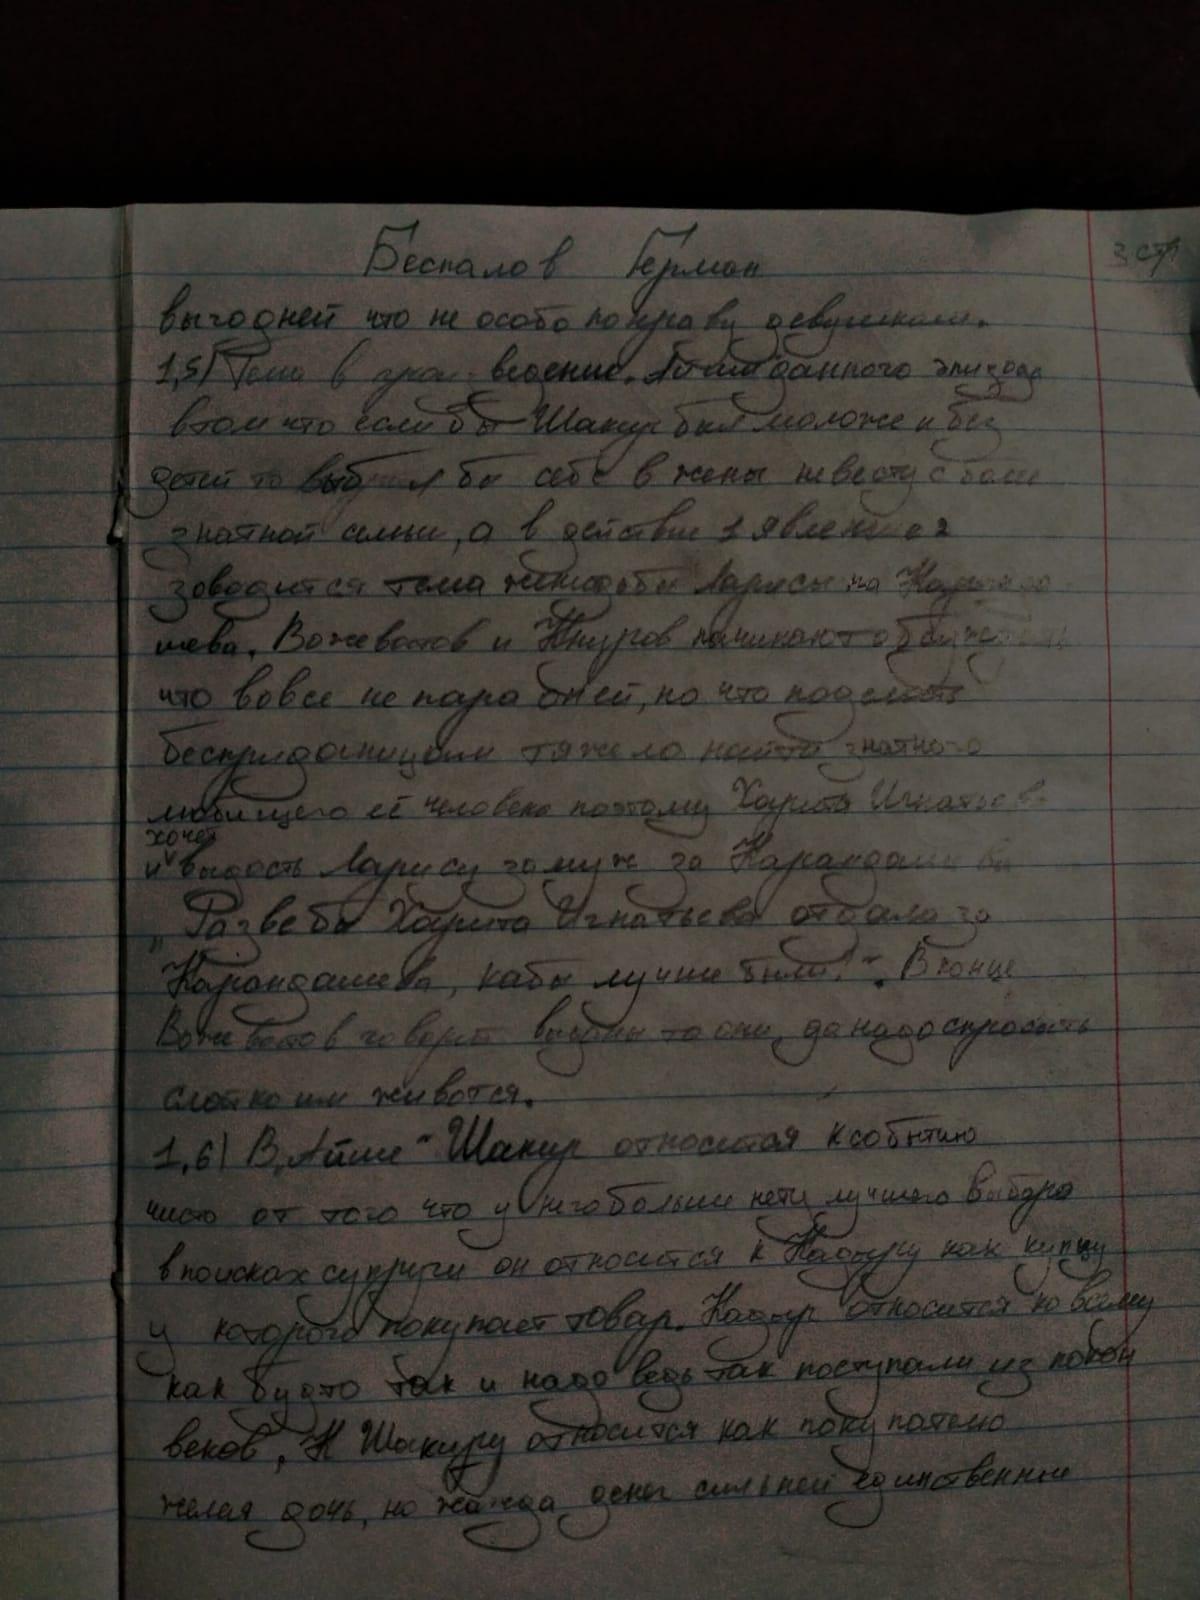 Беспалов Герман
3 стр
выгодней что не особо по нраву девушкам.
1,5) Тема в произведение. данного эпизода
в том что если бы Шакир был моложе и без
детей то выбрал бы себе в жены невесту с более
знатной семьи, а в действие 1 явление 2
заводится тема женидьбы Ларисы на Каранда
шева. Вожеватов и Кнуров начинают обсуждать
что вовсе не пара он ей, но что поделать
бесприданицам тяжело найти знатного
любящего её человека поэтому Харита Игнатьева
хочет
и выдать Ларису замуж за Карандашева
"Разве бы Харита Игнатьева отдала за
Карандашева, кабы лучше были!". В конце
Вожеватов говорит видны то они, да надо спросить
слатко им животся.
1,6) В "Айше" Шакир относится к событию
чисто от того что у него больше нету лучшего выбора
в поисках супруги он относится к Кадыру как купцу
у которого покупает товар. Кадыр относится ко всему
как будто так и надо ведь так поступали из покон
веков. К Шакиру относится как покупателю
желая дочь, но жажда денег сильней единственние